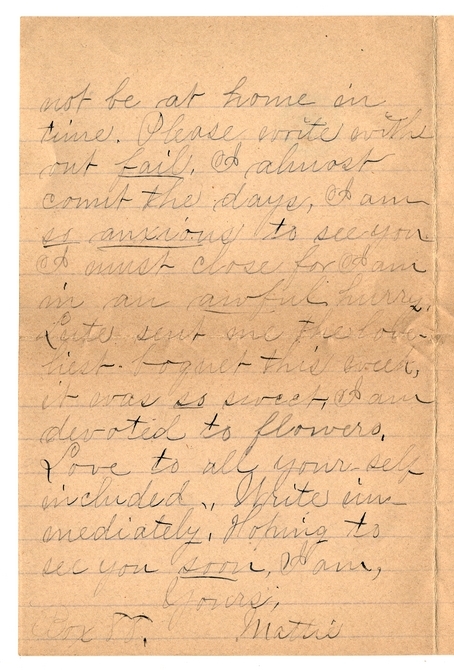 not be at home in
time. Please write with
out fail. I almost
count the days, I am
so anxious to see you
I must close for I am
in an awful hurry.
Lute sent me the love-
liest boquet this week,
it was so sweet, I am
devoted to flowers.
Love to all yourself
included. Write im
mediately. Hoping to
see you soon, I am,
Yours,
Box 88. Mattie